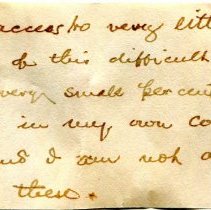 access to very litt
of this difficult
very small percent
in my own co
and I am not a
these.